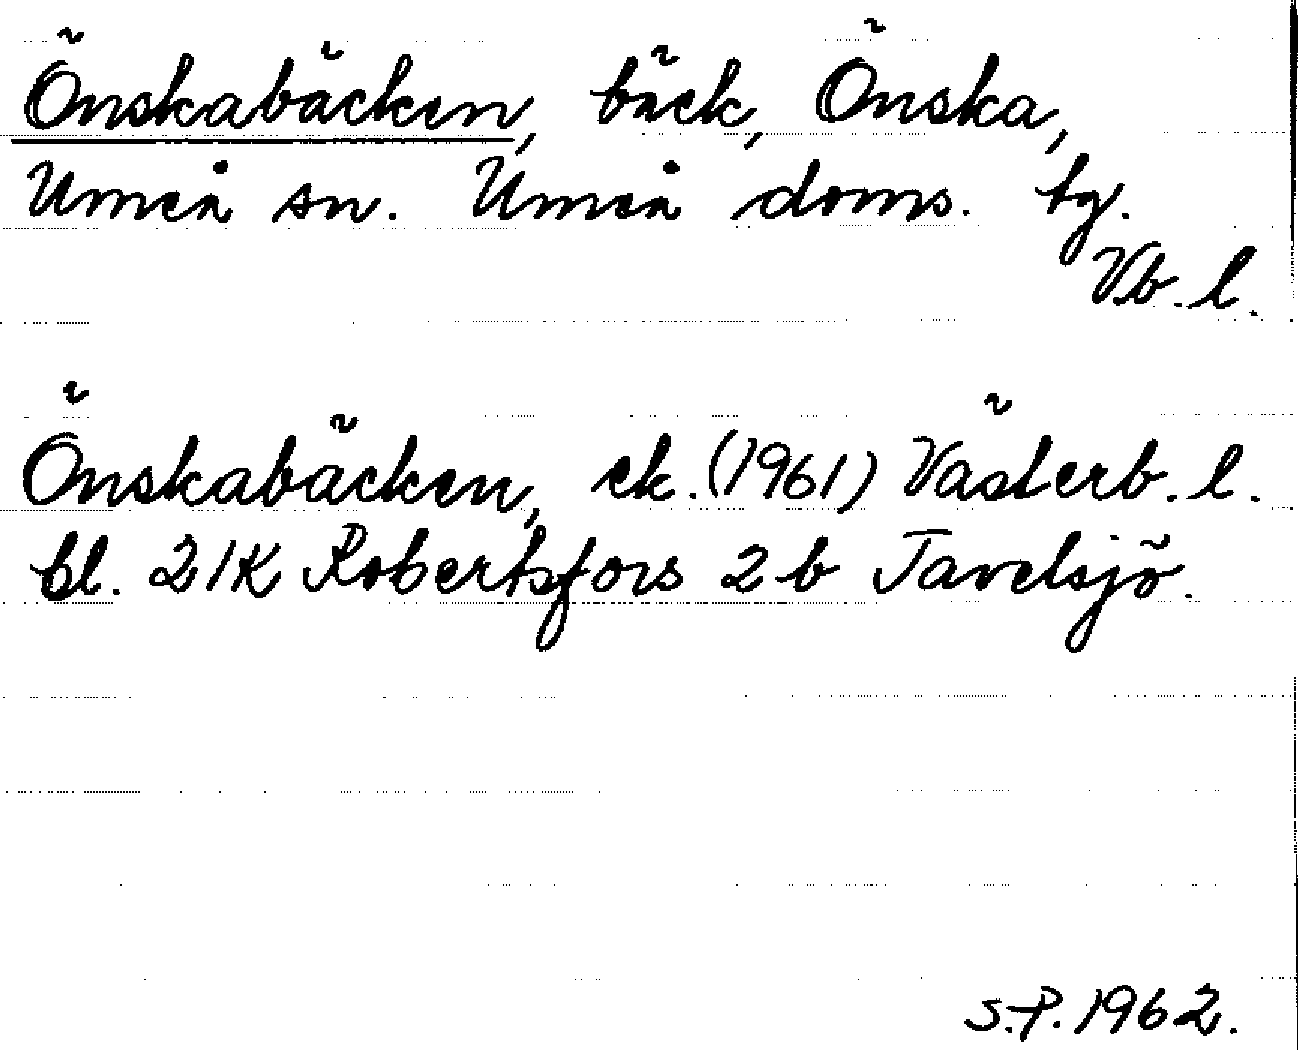 Önskabäcken, bäck, Önska,
Umeå sn. Umeå doms. tg.
Vb. l.
Önskabäcken, ek. (1961) Västerb. l.
bl. 21K Robertsfors 2 b Tavelsjö.
S.P. 1962.